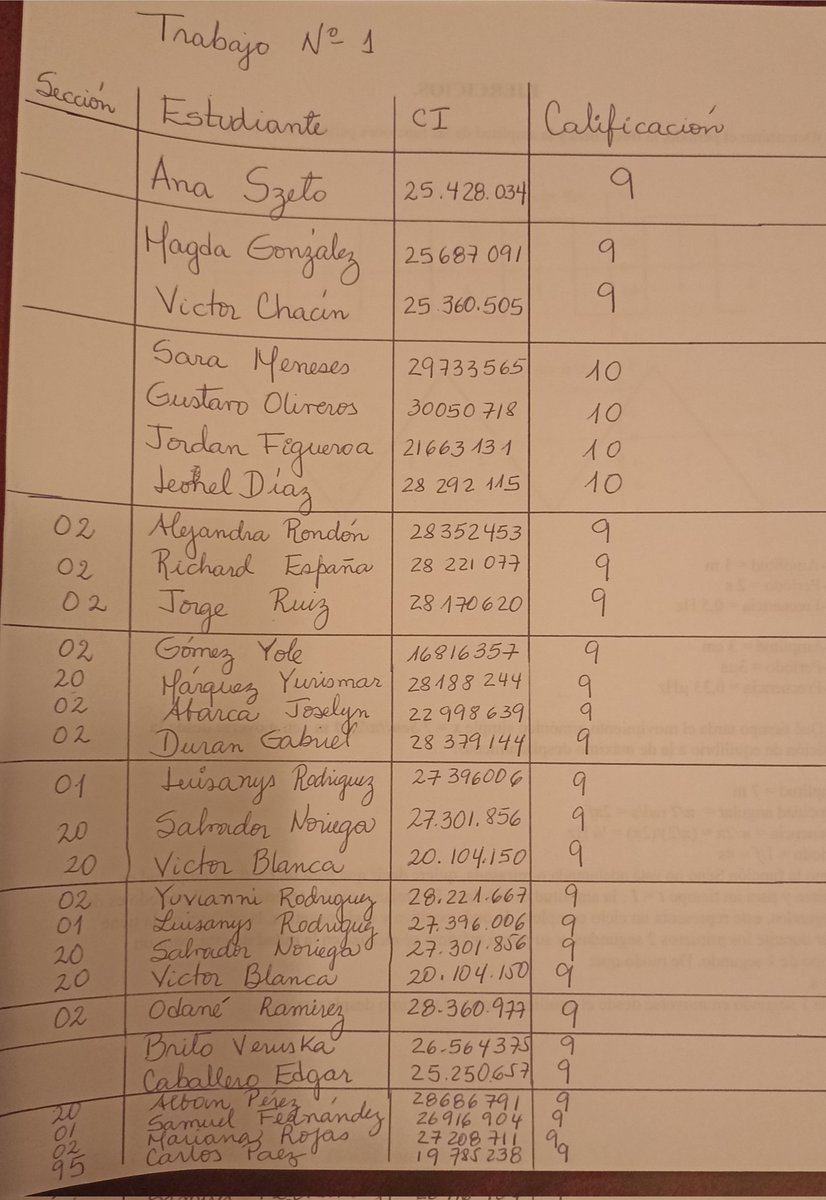 Trabajo Nº 1
Sección Estudiante CI Calificación
Ana Szeto 25.428.034 9
Magda González 25687091 9
Victor Chacín 25.360.505 9
Sara Meneses 29733565 10
Gustavo Oliveros 30050718 10
Jordan Figueroa 21663131 10
Leonel Díaz 28 292 115 10
02 Alejandra Rondón 28352453 9
02 Richard España 28 221 077 9
02 Jorge Ruiz 28170620 9
02 Gómez Yole 16816357 9
20 Márquez Yurismar 28188 244 9
02 Abarca Joselyn 22998639 9
02 Duran Gabriel 28 379144 9
01 Luisanys Rodriguez 27396006 9
20 Salvador Noriega 27.301.856 9
20 Victor Blanca 20.104.150 9
02 Yuvianni Rodriguez 28.221.667 9
01 Luisanys Rodriguez 27.396.006 9
20 Salvador Noriega 27.301.856 9
20 Victor Blanca 20.104.150 9
02 Odané Ramirez 28.360.977 9
Brito Veruska 26.564375 9
Caballero Edgar 25.250.657 9
20 Alban Pérez 28686791 9
01 Samuel Fernández 26916904 9
02 Rojas 27208711 9
95 Carlos Paez 19 785238 9